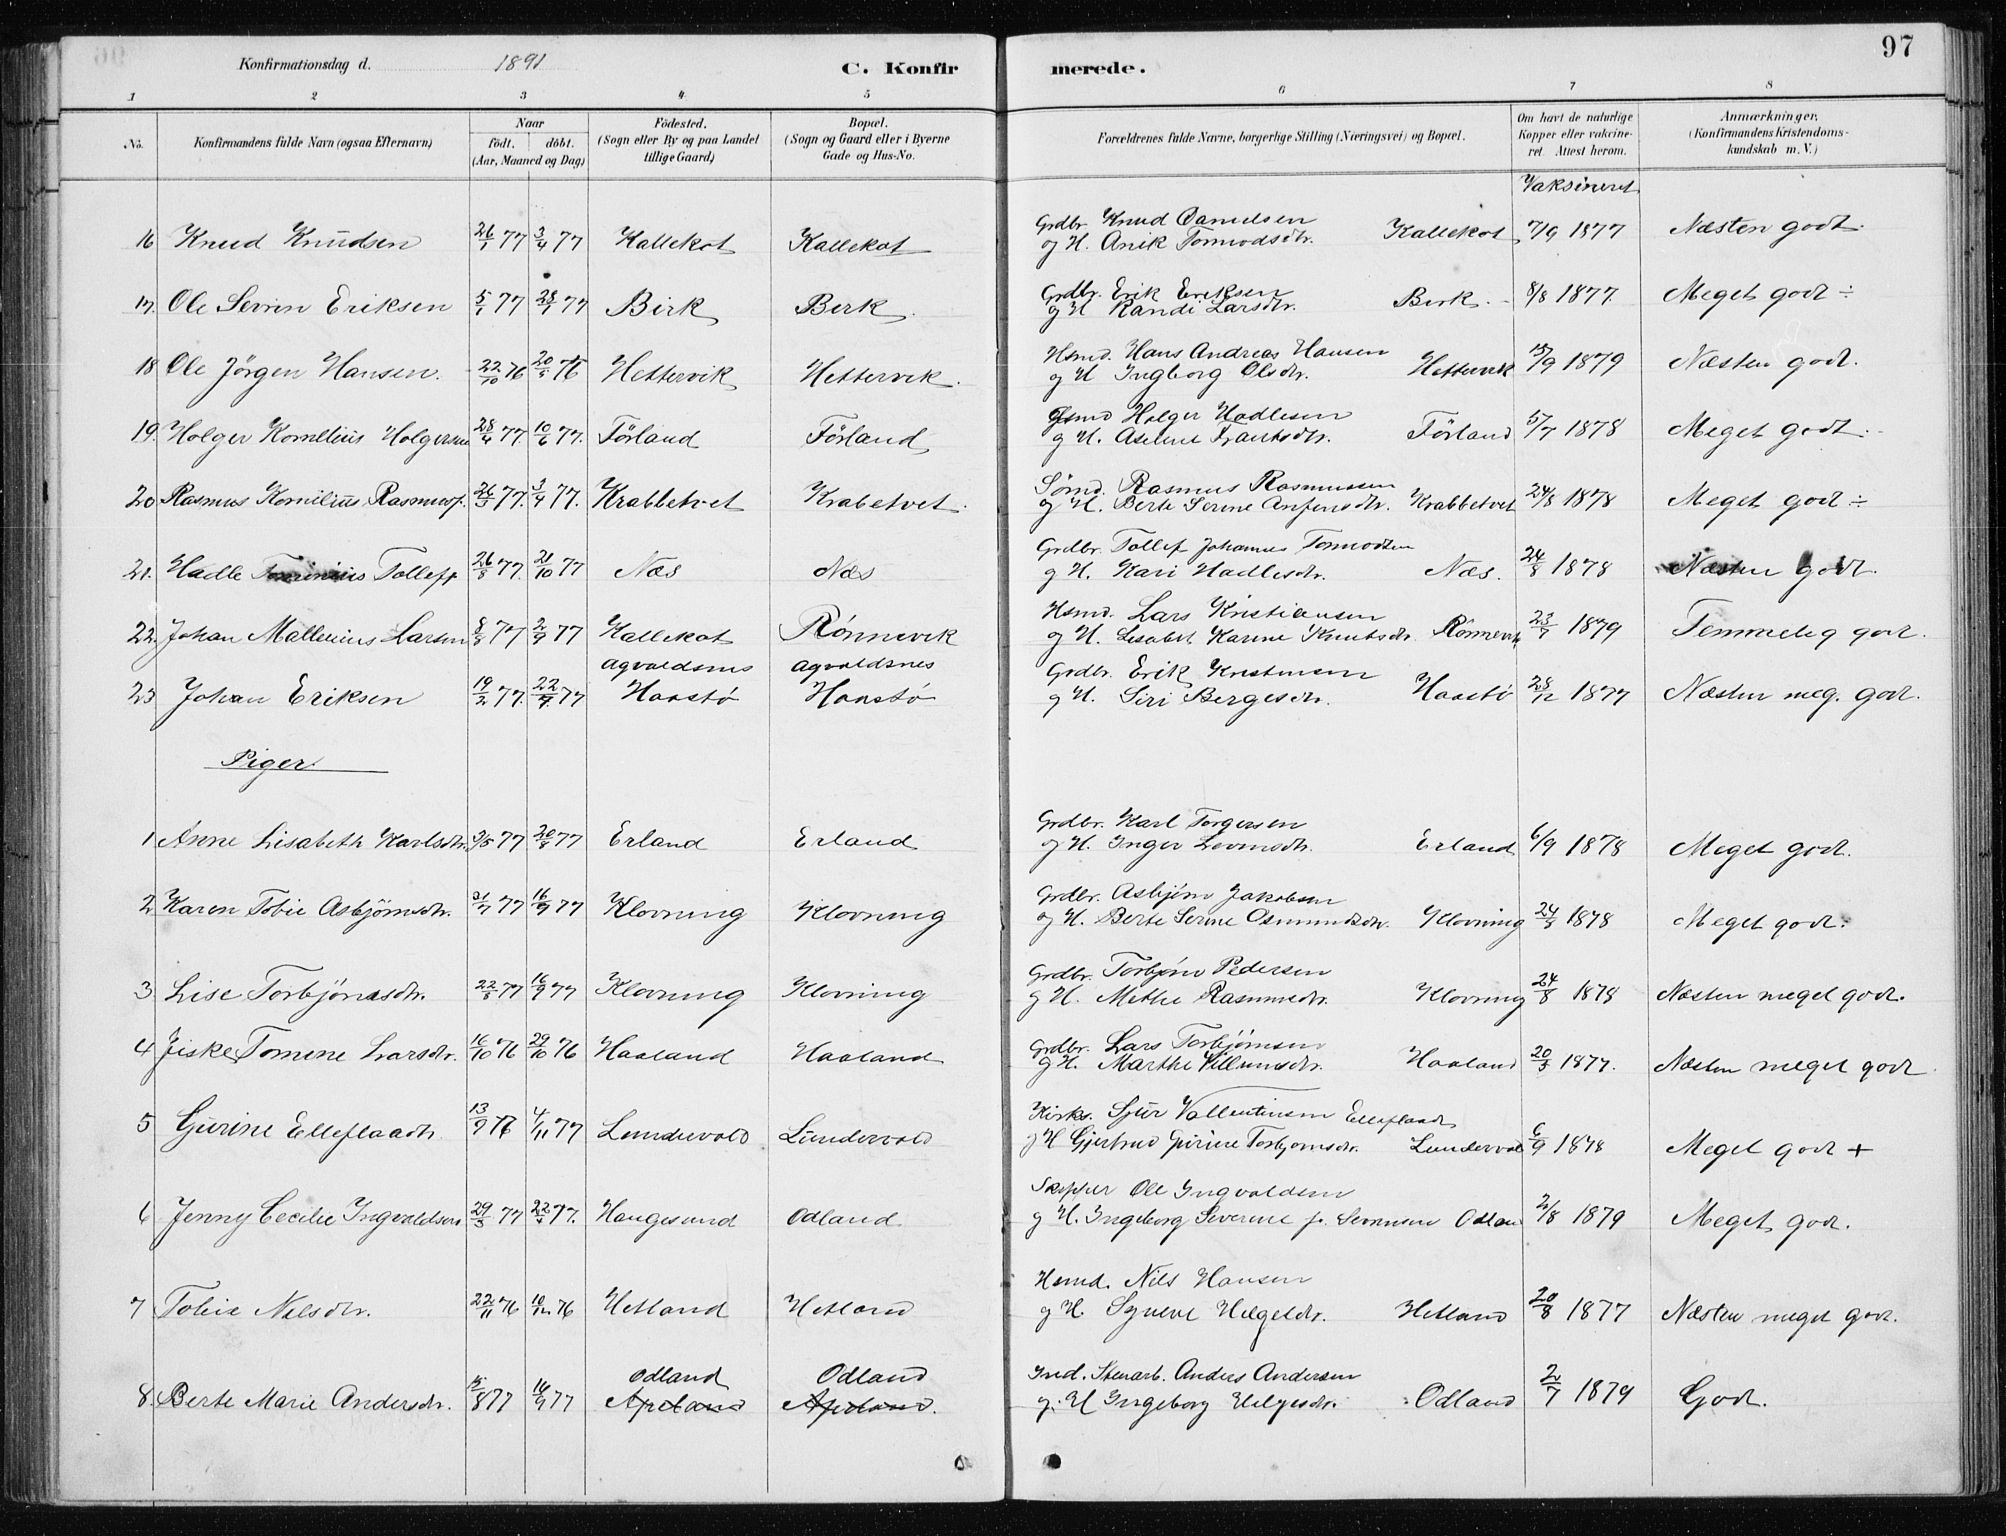 97
Konfirmationsdag d. 1891 C. Konfirmerede.
1 2 3 4 5 6 7 8
No. Konfirmandens fulde Navn (ogsaa Efternavn) Naar födt. döbt. (Aar, Maaned og Dag) Födested. (Sogn eller By og paa Landet tillige Gaard) Bopæl. (Sogn og Gaard eller i Byerne Gade og Hus-No. Forældrenes fulde Navne, borgerlige Stilling (Næringsvei) og Bopæl. Om havt de naturlige Kopper eller vakcineret. Attest herom. Anmærkninger, (Konfirmandens Kristendomskundskab m. V.)
Vaksineret
16 Knud Knudsen 26/1 77 3/4 77 Kallekot Kallekot Grdbr. Knud Danielsen og H. Anik Tormodsdtr. Kallekot 7/9 1877 Næsten godt.
17. Ole Sevrin Eriksen 5/1 77 28/1 77 Birk Berk Grdbr. Erik Eriksen og H Randi Larsdtr. Berk 8/8 1877. Meget godt ÷
18 Ole Jörgen Hansen. 22/10 76 76 Hettervik Hettervik. Hsmd. Hans Andreas Hansen og H Ingborg Olsdtr. Hettervik 1879 Næsten godt.
19. Holger Kornelius Holgersen 28/4 77. 10/6 77. Förland Förland Hsmd Holger Hadlesen og H. Aseline Frantsdtr. Förland 5/7 1878 Meget godt.
20 Rasmus Kornilius Rasmuss. 26/3 77. 3/4 77. Krabbetvet Krabetvet. Sömd. Rasmus Rasmussen og H. Berte Serine Anfensdtr. Krabbetvet 24/8 1878 Meget godt ÷
21. Hadle Tollefs. 26/8 77. 21/10 77 Næs Næs Grdbr. Tollef Johannes Tormodsen og H. Kari Hadlesdtr. Næs. 24/8 1878 Næsten godt.
22. Johan Mallenius Larsen 8/8 77 2/9 77 Kallekot Rönnevik Hsmd. Lars Kristiansen og H. Lisabet Karine Knutsdtr. Rönnevik 23/7 1879 Temmelig godt.
23 Johan Eriksen 19/2 77. 22/4 77 Agvaldsnes Haastö Agvaldsnes Haastö Grdbr. Erik Kristensen og H. Siri Bergesdtr. Haastö 28/12 1877 Næsten meg. godt.
Piger
1 Anne Lisabeth Karlsdtr. 3/5 77 20/5 77 Erland Erland Grdbr. Karl Torgersen og H. Inger Levinsdtr. Erland 6/9 1878 Meget godt.
2 Karen Tobie Asbjörnsdtr. 31/7 77 16/9 77 Klovning Klovning Grdbr. Asbjörn Jakobsen og H. Berte Serine Osmundsdtr. Klovning 24/8 1878 Meget godt.
3 Lise Torbjörnsdtr. 22/8 77 16/9 77 Klovning Klovning Grdbr. Torbjörn Pedersen og H. Methe Rasmusdtr. Klovning 24/8 1878 Næsten meget godt.
4 Jiske Tomine Larsdtr. 16/10 76 29/10 76 Haaland Haaland Grdbr. Lars Torbjörnsen og H. Marthe Villumsdtr. Haaland 20/8 1877. Næsten meget godt
5 Gurine Elleflaadt 13/9 76 4/11 77 Lundervold Lundervold Kirkes. Sjur Vallentinsen Elleflaadt og H Gjertrud Guriene Torbjornsdtr. Lundervold 6/9 1878 Meget godt +
6 Jenny Cecilie Ingvaldsen 29/3 77 22/4 77. Haugesund Odland Skipper Ole Ingvaldsen og H. Ingeborg Severine f. Sevrinsen Odland 2/8 1879 Meget godt.
7 Tobie Nilsdtr. 22/11 76 10/12 76 Hetland Hetland Hsmd. Nils Hansen og H. Syneve Helgesdtr. Hetland 20/8 1877 Næsten meget godt.
8. Berte Marie Andersdtr. 5/8 77 16/9 77 Odland Apeland Odland Apeland. Ind. Stenarb. Anders Andersen og H Ingeborg Helgesdtr. Odland 2/7 1879 Godt.